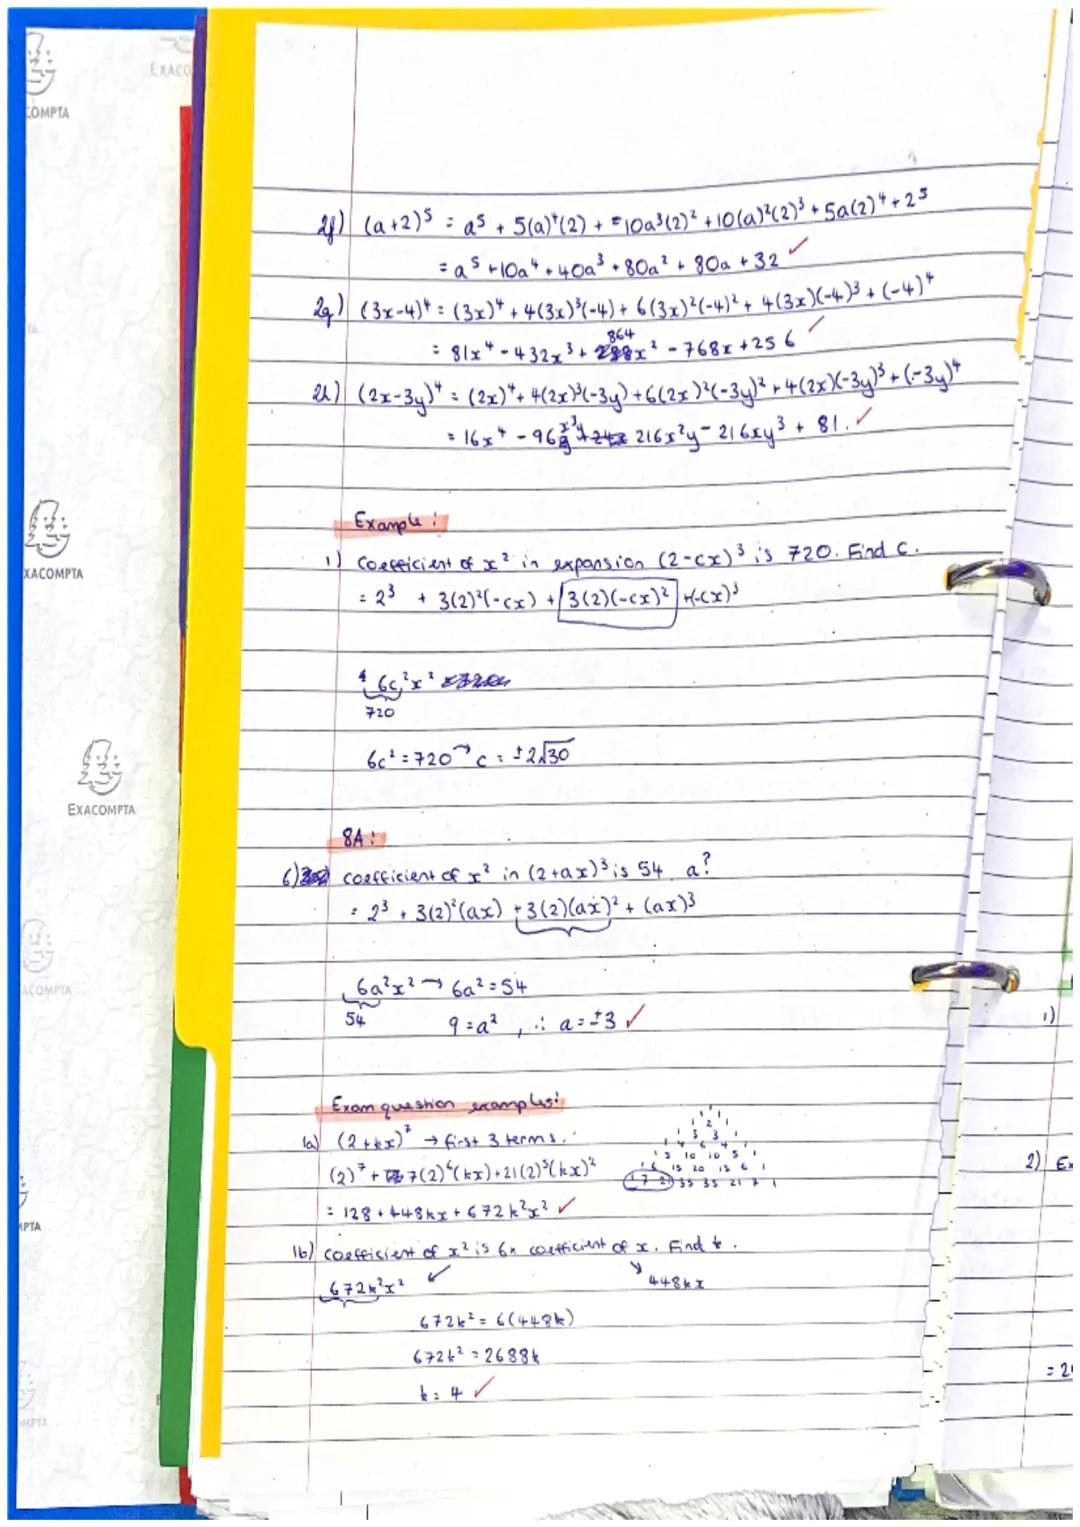 EXACO
COMPTA
2f) (a+2)⁵ = a⁵ + 5(a)⁴(2) + =10a³(2)² + 10(a)²(2)³ + 5a(2)⁴ + 2⁵
= a⁵ + 10a⁴ + 40a³ + 80a² + 80a + 32 ✓
2g) (3x-4)⁴ = (3x)⁴ + 4(3x)³(-4) + 6(3x)²(-4)² + 4(3x)(-4)³ + (-4)⁴
864
= 81x⁴ - 432x³ + x² - 768x + 256
2h) (2x-3y)⁴ = (2x)⁴ + 4(2x)³(-3y) + 6(2x)²(-3y)² + 4(2x)(-3y)³ + (-3y)⁴
= 16x⁴ - 96x³y + 216x²y - 216xy³ + 81. ✓
Example :
XACOMPTA
1) Coefficient of x² in expansion (2-cx)³ is 720. Find c.
= 2³ + 3(2)²(-cx) + 3(2)(-cx)² + (-cx)³
6c²x²
720
6c² = 720 → c = ±2√30
EXACOMPTA
8A :
6) coefficient of x² in (2+ax)³ is 54. a?
= 2³ + 3(2)²(ax) + 3(2)(ax)² + (ax)³
ACOMPTA
6a²x² → 6a² = 54
54
9 = a² , ∴ a = ±3 ✓
1)
Exam question examples:
1a) (2+kx)⁷ → first 3 terms.
(2)⁷ + 7(2)⁶(kx) + 21(2)⁵(kx)²
= 128 + 448kx + 672k²x² ✓
1 1
1 2 1
1 3 3 1
1 4 6 4 1
1 5 10 10 5 1
1 6 15 20 15 6 1
1 7 21 35 35 21 7 1
2) Ex
MPTA
1b) coefficient of x² is 6x coefficient of x. Find k.
672k²x²
448kx
672k² = 6(448k)
672k² = 2688k
k = 4 ✓
= 2
MPTA